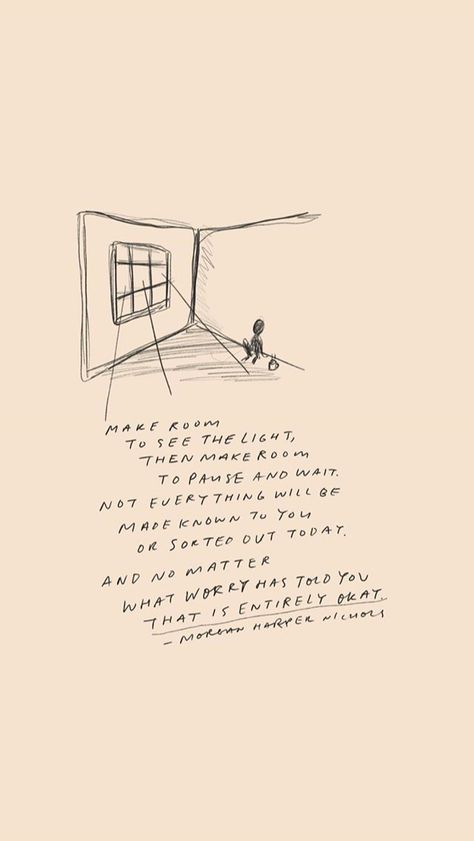 MAKE ROOM
TO SEE THE LIGHT,
THEN MAKE ROOM
TO PAUSE AND WAIT.
NOT EVERYTHING WILL BE
MADE KNOWN TO YOU
OR SORTED OUT TODAY.
AND NO MATTER
WHAT WORRY HAS TOLD YOU
THAT IS ENTIRELY OKAY.
- MORGAN HARPER NICHOLS